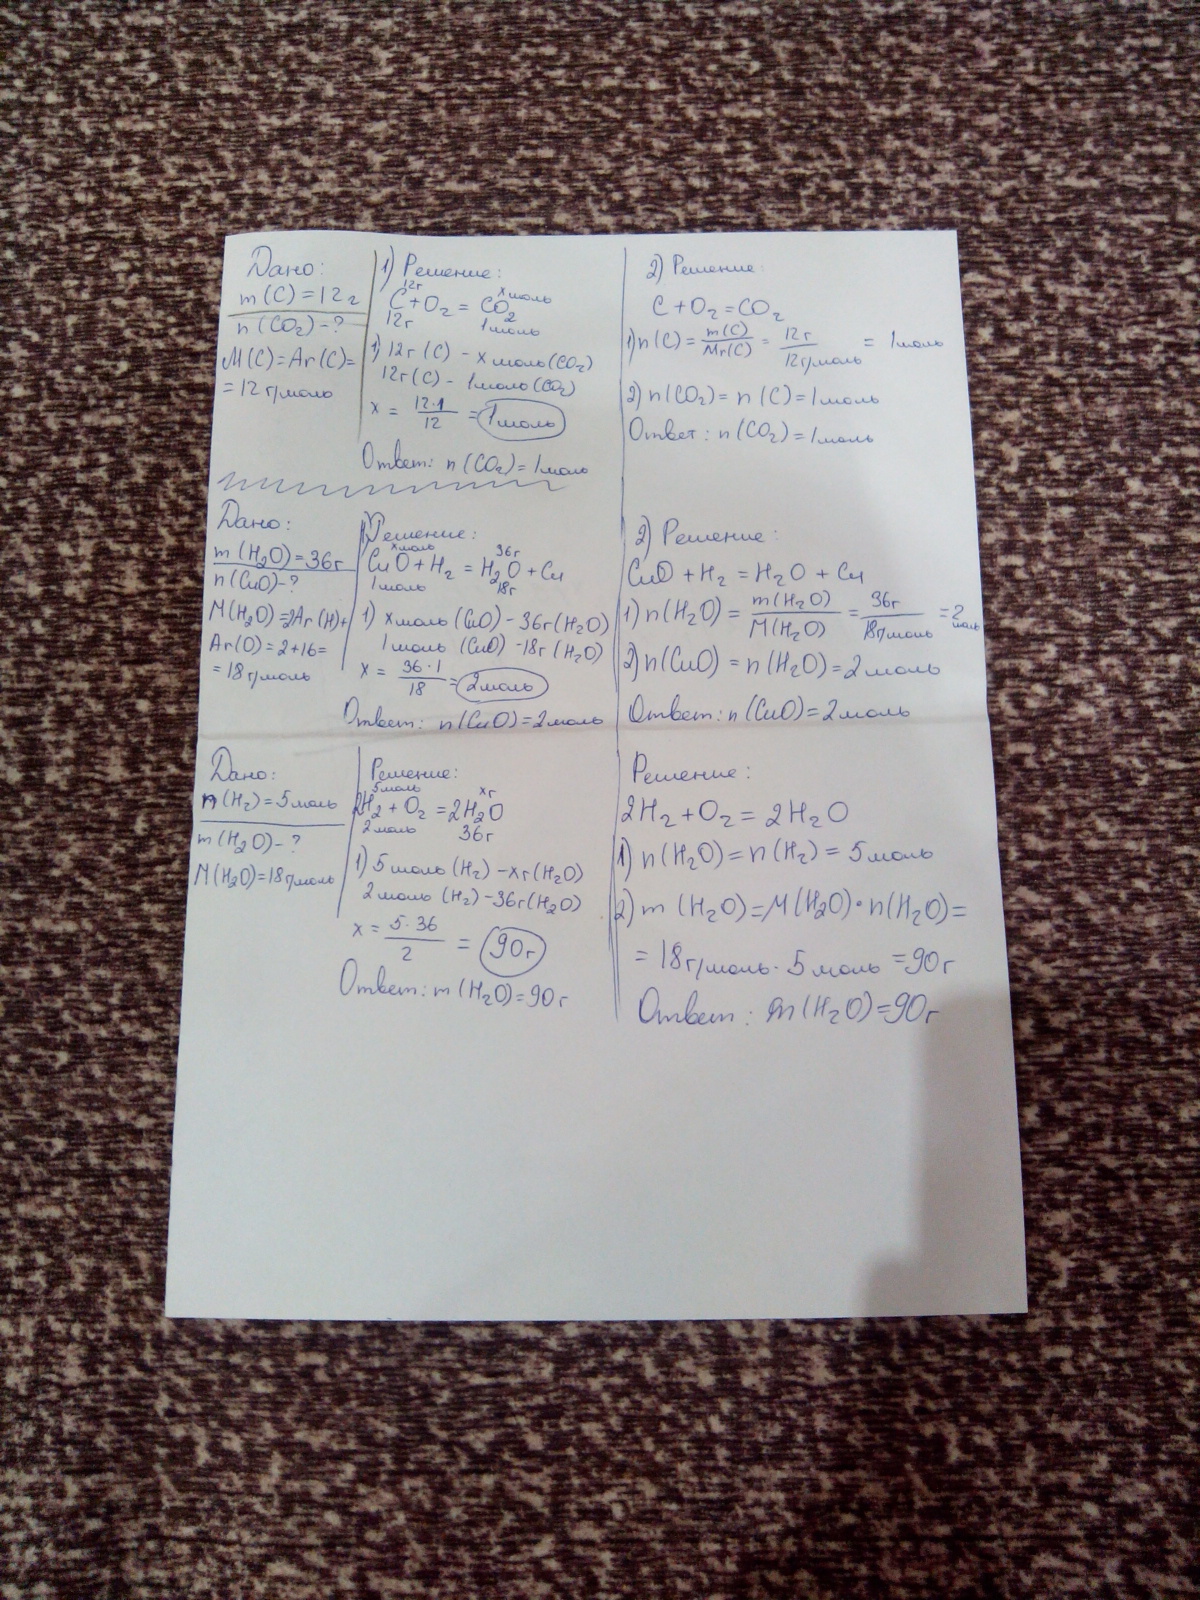 Дано:
m(C)=12г
n(CO₂)-?
M(C)=Ar(C)=
=12г/моль
1) Решение:
12г x моль
C+O₂=CO₂
12г 1моль
1) 12г(C) - x моль(CO₂)
12г(C) - 1моль(CO₂)
x = 12·1/12 = 1моль
Ответ: n(CO₂)=1моль
2) Решение:
C+O₂=CO₂
1) n(C) = m(C)/Mr(C) = 12г/12г/моль = 1моль
2) n(CO₂)= n(C)=1моль
Ответ: n(CO₂)=1моль
Дано:
m(H₂O)=36г
n(CuO)-?
M(H₂O)=2Ar(H)+
Ar(O)=2+16=
=18г/моль
1) Решение:
x моль 36г
CuO+H₂=H₂O+Cu
1моль 18г
1) x моль (CuO) - 36г(H₂O)
1моль (CuO) - 18г(H₂O)
x = 36·1/18 = 2моль
Ответ: n(CuO)=2моль
2) Решение:
CuO+H₂=H₂O+Cu
1) n(H₂O) = m(H₂O)/M(H₂O) = 36г/18г/моль = 2моль
2) n(CuO) = n(H₂O)=2моль
Ответ: n(CuO)=2моль
Дано:
n(H₂)=5моль
m(H₂O)-?
M(H₂O)=18г/моль
Решение:
5моль xг
2H₂+O₂=2H₂O
2моль 36г
1) 5моль(H₂) - xг(H₂O)
2моль(H₂) - 36г(H₂O)
x = 5·36/2 = 90г
Ответ: m(H₂O)=90г
Решение:
2H₂+O₂=2H₂O
1) n(H₂O)=n(H₂)=5моль
2) m(H₂O)=M(H₂O)·n(H₂O)=
=18г/моль·5моль=90г
Ответ: m(H₂O)=90г